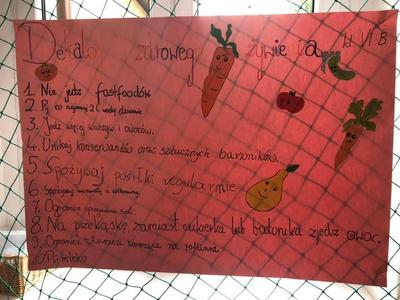 Dekalog zdrowego żywienia kl. VI B
1. Nie jedz fastfoodów
2. Pij co najmniej 2 l wody dziennie
3. Jedz więcej warzyw i owoców.
4. Unikaj konserwantów oraz sztucznych barwników.
5. Spożywaj posiłki regularnie
6. witaminy
7. Ogranicz spożywanie soli.
8. Na przekąskę, zamiast cukierka lub batonika zjedz owoc.
9. Ogranicz tłuszcze zwierzęce na roślinne
10. Pij mleko